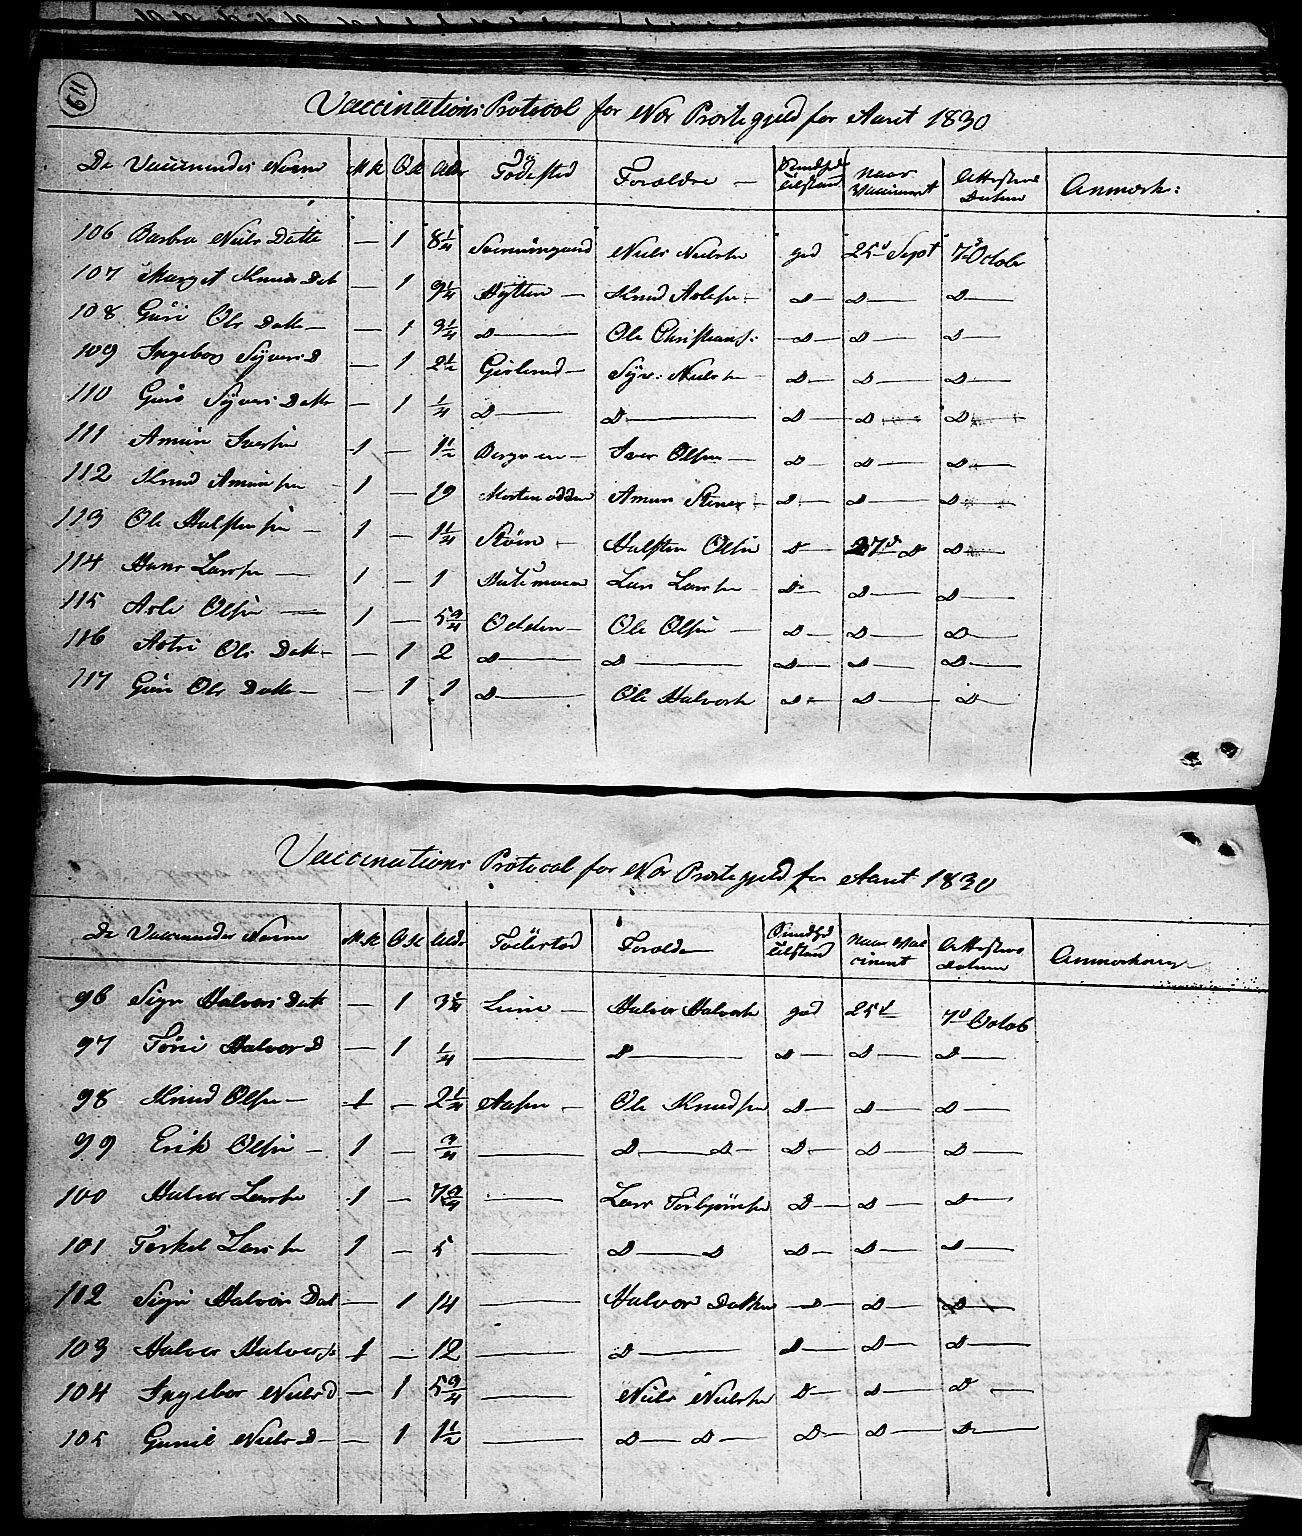 119
Vaccinations Protocol for Nor Præstegjeld for Aaret 1830
De Vaccineredes Navne M.K Q.K Alder Födested Forældre Sundheds tilstand Naar Vaccineret Attestens Datum Anmærk:
106 Barbo Niels Datte — 1 8 1/4 Niels Nielse god 25d Sept 7d Octobr
107 Marget Knuds Dat — 1 9 1/4 Hytten — Knud D— D— D—
108 Guri Ols Datte — — 1 3 1/4 D— Ole Christians: D— D— D—
109 Ingebor Syvers D — 1 2 1/2 Syv: Nielse — D— D— D—
110 Guro Syvers Datte — 1 1/4 D— D— D— D— D—
111 Amun Iversen 1 — 1 1/2 Bergreen — Iver Olsen — D— D— D—
112 Knud Amunsen 1 — 19 Mortenodden Amun D— D— D—
113 Ole Halstensen — 1 — 1 1/4 Halsten Olsen D— 27d D D—
114 Hans Larsen — 1 — 1 Lars Larsen D— D— D—
115 Asle Olsen — 1 — 5 3/4 Odden — Ole Olsen — D— D— D—
116 Astri Ols Datte — — 1 2 D— D— D— D— D—
117 Guri Ols Datte — — 1 1 D— Ole Halvorse D— D— D—
Vaccinations Protocol for Nor Præstegjeld for Aaret 1830
De Vaccineredes Navne M.K Q.K Alder Födested Forældre Sundheds tilstand Naar Vaccineret Attestens Datum Anmærkning
96 Sigri Halvors Datte — 1 3 1/4 — Halvor Halvorse god 25d 7d Octob
97 Töri Halvors D — 1 1/4 — D— D— D— D—
98 Knud Olsen — 1 — 2 1/4 Aasen — Ole Knudsen D— D— D—
99 Erik Olsen — 1 — 3/4 — D— D— D— D— D—
100 Halvor Larsen 1 — 7 3/4 — Lars Torbjörnsen D— D— D—
101 Torkel Larsen 1 — 5 — D— D D— D— D—
112 Sigri Halvors Dat — 1 14 — Halvor Dokken D— D— D—
103 Halvor Halvorse 1 — 12 — D— D— D— D—
104 Ingebor Niels D — 1 5 3/4 — Niels Nielsen D— D— D—
105 Gunil Niels D — 1 1 1/2 — D— D— D— D— D—